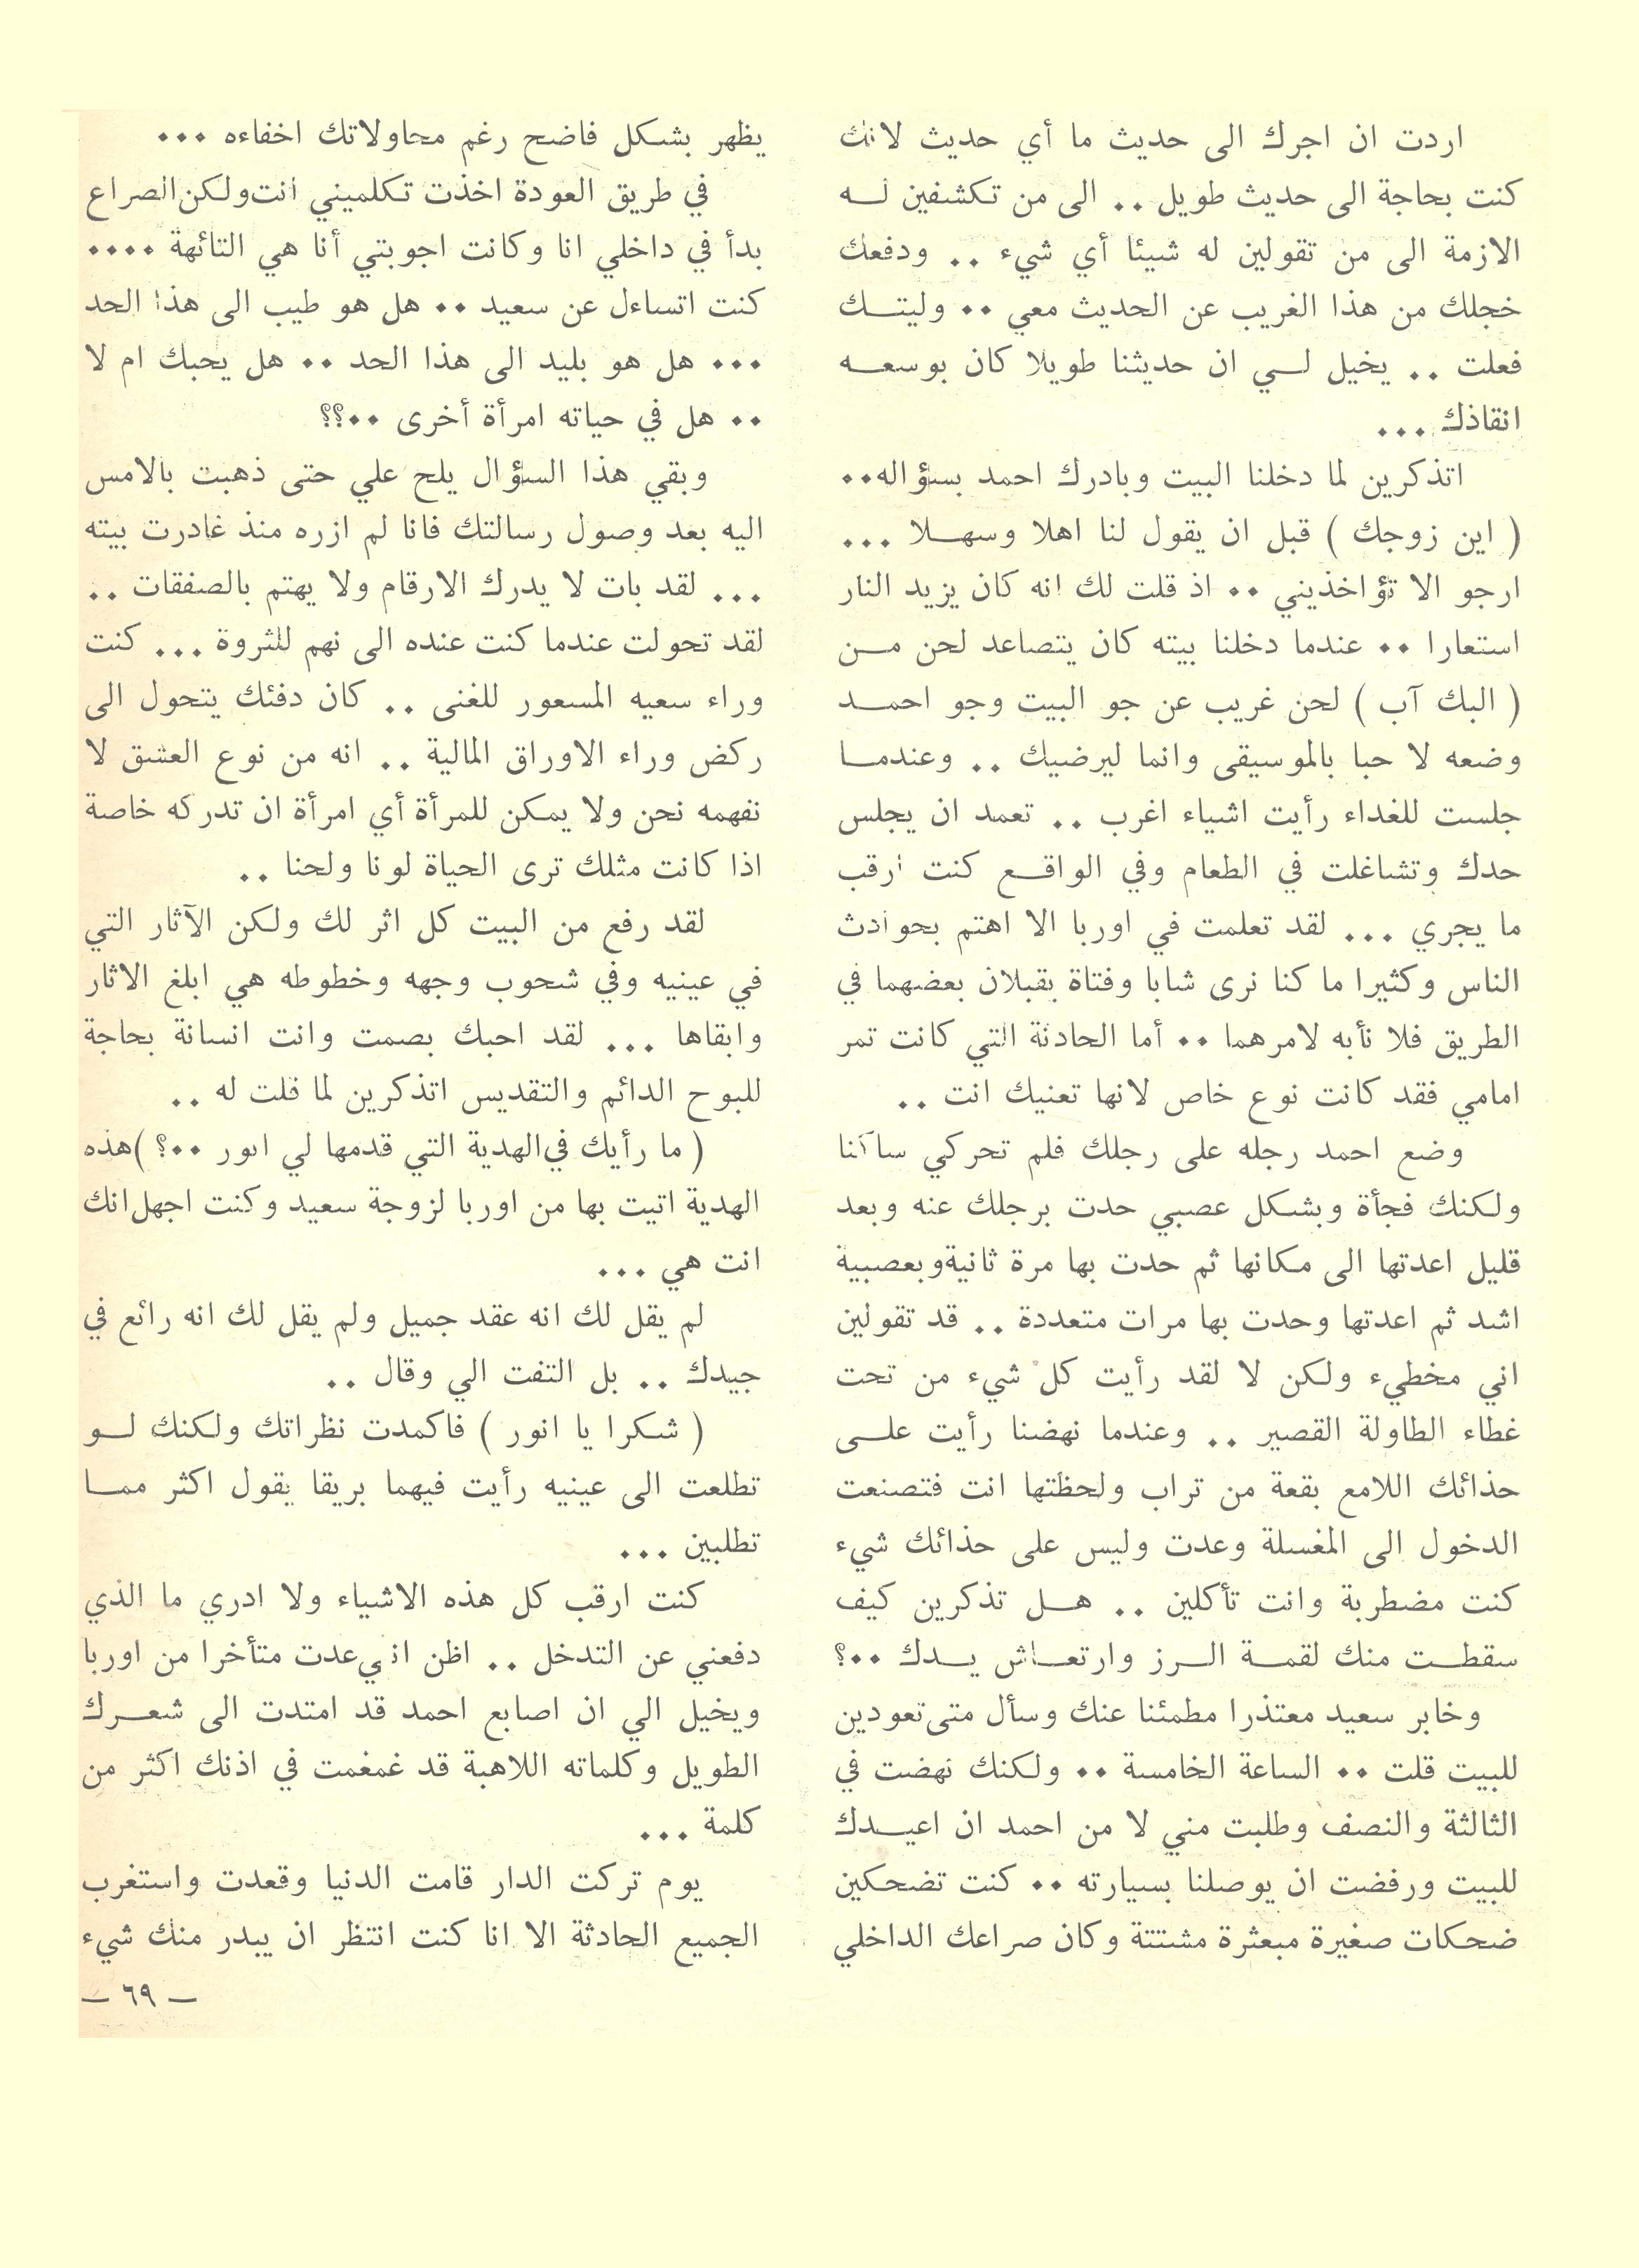 اردت ان اجرك الى حديث ما أي حديث لانك
كنت بحاجة الى حديث طويل .. الى من تكشفين له
الازمة الى من تقولين له شيئا أي شيء .. ودفعك
خجلك من هذا الغريب عن الحديث معي .. وليتك
فعلت .. يخيل لي ان حديثنا طويلا كان بوسعه
انقاذك ...
اتذكرين لما دخلنا البيت وبادرك احمد بسؤاله..
( اين زوجك ) قبل ان يقول لنا اهلا وسهلا ...
ارجو الا تؤاخذيني .. اذ قلت لك انه كان يزيد النار
استعارا .. عندما دخلنا بيته كان يتصاعد لحن من
( البك آب ) لحن غريب عن جو البيت وجو احمد
وضعه لا حبا بالموسيقى وانما ليرضيك .. وعندما
جلست للغداء رأيت اشياء اغرب .. تعمد ان يجلس
حدك وتشاغلت في الطعام وفي الواقع كنت ارقب
ما يجري ... لقد تعلمت في اوربا الا اهتم بحوادث
الناس وكثيرا ما كنا نرى شابا وفتاة يقبلان بعضهما في
الطريق فلا نأبه لامرهما .. أما الحادثة التي كانت تمر
امامي فقد كانت نوع خاص لانها تعنيك انت ..
وضع احمد رجله على رجلك فلم تحركي ساكنا
ولكنك فجأة وبشكل عصبي حدت برجلك عنه وبعد
قليل اعدتها الى مكانها ثم حدت بها مرة ثانية وبعصبية
اشد ثم اعدتها وحدت بها مرات متعددة .. قد تقولين
اني مخطيء ولكن لا لقد رأيت كل شيء من تحت
غطاء الطاولة القصير .. وعندما نهضنا رأيت على
حذائك اللامع بقعة من تراب ولحظتها انت فتصنعت
الدخول الى المغسلة وعدت وليس على حذائك شيء
كنت مضطربة وانت تأكلين .. هل تذكرين كيف
سقطت منك لقمة الرز وارتعاش يدك ..؟
وخابر سعيد معتذرا مطمئنا عنك وسأل متى تعودين
للبيت قلت .. الساعة الخامسة .. ولكنك نهضت في
الثالثة والنصف وطلبت مني لا من احمد ان اعيدك
للبيت ورفضت ان يوصلنا بسيارته .. كنت تضحكين
ضحكات صغيرة مبعثرة مشتتة وكان صراعك الداخلي
يظهر بشكل فاضح رغم محاولاتك اخفاءه ...
في طريق العودة اخذت تكلميني انت ولكن الصراع
بدأ في داخلي انا وكانت اجوبتي أنا هي التائهة ....
كنت اتساءل عن سعيد .. هل هو طيب الى هذا الحد
... هل هو بليد الى هذا الحد .. هل يحبك ام لا
.. هل في حياته امرأة أخرى ..؟؟
وبقي هذا السؤال يلح علي حتى ذهبت بالامس
اليه بعد وصول رسالتك فانا لم ازره منذ غادرت بيته
... لقد بات لا يدرك الارقام ولا يهتم بالصفقات ..
لقد تحولت عندما كنت عنده الى نهم للثروة ... كنت
وراء سعيه المسعور للغنى .. كان دفئك يتحول الى
ركض وراء الاوراق المالية .. انه من نوع العشق لا
نفهمه نحن ولا يمكن للمرأة أي امرأة ان تدركه خاصة
اذا كانت مثلك ترى الحياة لونا ولحنا ..
لقد رفع من البيت كل اثر لك ولكن الآثار التي
في عينيه وفي شحوب وجهه وخطوطه هي ابلغ الاثار
وابقاها ... لقد احبك بصمت وانت انسانة بحاجة
للبوح الدائم والتقديس اتذكرين لما قلت له ..
( ما رأيك في الهدية التي قدمها لي انور ..؟ ) هذه
الهدية اتيت بها من اوربا لزوجة سعيد وكنت اجهل انك
انت هي ...
لم يقل لك انه عقد جميل ولم يقل لك انه رائع في
جيدك .. بل التفت الي وقال ..
( شكرا يا انور ) فاكمدت نظراتك ولكنك لو
تطلعت الى عينيه رأيت فيهما بريقا يقول اكثر مما
تطلبين ...
كنت ارقب كل هذه الاشياء ولا ادري ما الذي
دفعني عن التدخل .. اظن اني عدت متأخرا من اوربا
ويخيل الي ان اصابع احمد قد امتدت الى شعرك
الطويل وكلماته اللاهبة قد غمغمت في اذنك اكثر من
كلمة ...
يوم تركت الدار قامت الدنيا وقعدت واستغرب
الجميع الحادثة الا انا كنت انتظر ان يبدر منك شيء
— ٦٩ —